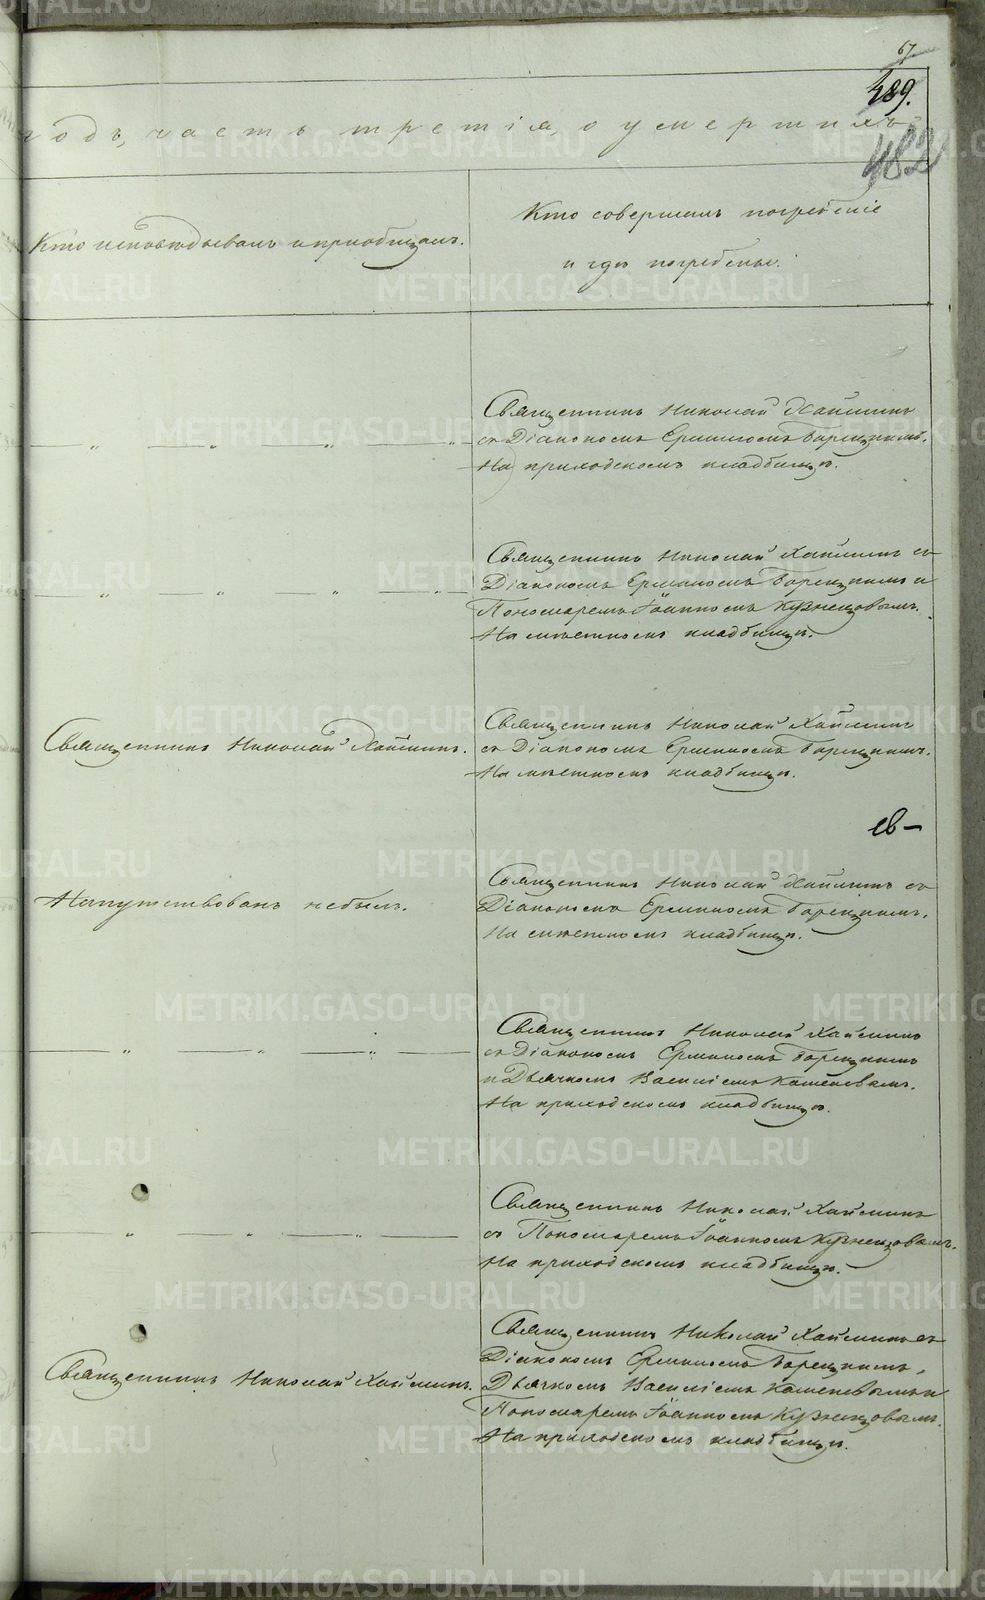 67
489.
482
годъ, часть третія, о умершихъ
Кто исповѣдывалъ и приобщалъ.
Кто совершалъ погребеніе
и гдѣ погребены.
Священникъ Николай Хайминъ
съ Діакономъ Ермиломъ Борецкимъ.
На приходскомъ кладбищѣ.
Священникъ Николай Хайминъ съ
Діакономъ Ермиломъ Борецкимъ и
Пономаремъ Іоанномъ Кузнецовымъ.
На мѣстномъ кладбищѣ.
Священникъ Николай Хайминъ.
Священникъ Николай Хайминъ
съ Діакономъ Ермиломъ Борецкимъ.
На мѣстномъ кладбищѣ.
Напутствованъ небылъ.
Священникъ Николай Хайминъ съ
Діакономъ Ермиломъ Борецкимъ.
На мѣстномъ кладбищѣ.
Священникъ Николай Хайминъ
съ Діакономъ Ермиломъ Борецкимъ
и Дьячкомъ Василіемъ
На приходскомъ кладбищѣ.
Священникъ Николай Хайминъ
съ Пономаремъ Іоанномъ Кузнецовымъ.
На приходскомъ кладбищѣ.
Священникъ Николай Хайминъ.
Священникъ Николай Хайминъ съ
Діакономъ Ермиломъ Борецкимъ,
Дьячкомъ Василіемъ
Пономаремъ Іоанномъ Кузнецовымъ.
На приходскомъ кладбищѣ.
METRIKI.GASO-URAL.RU